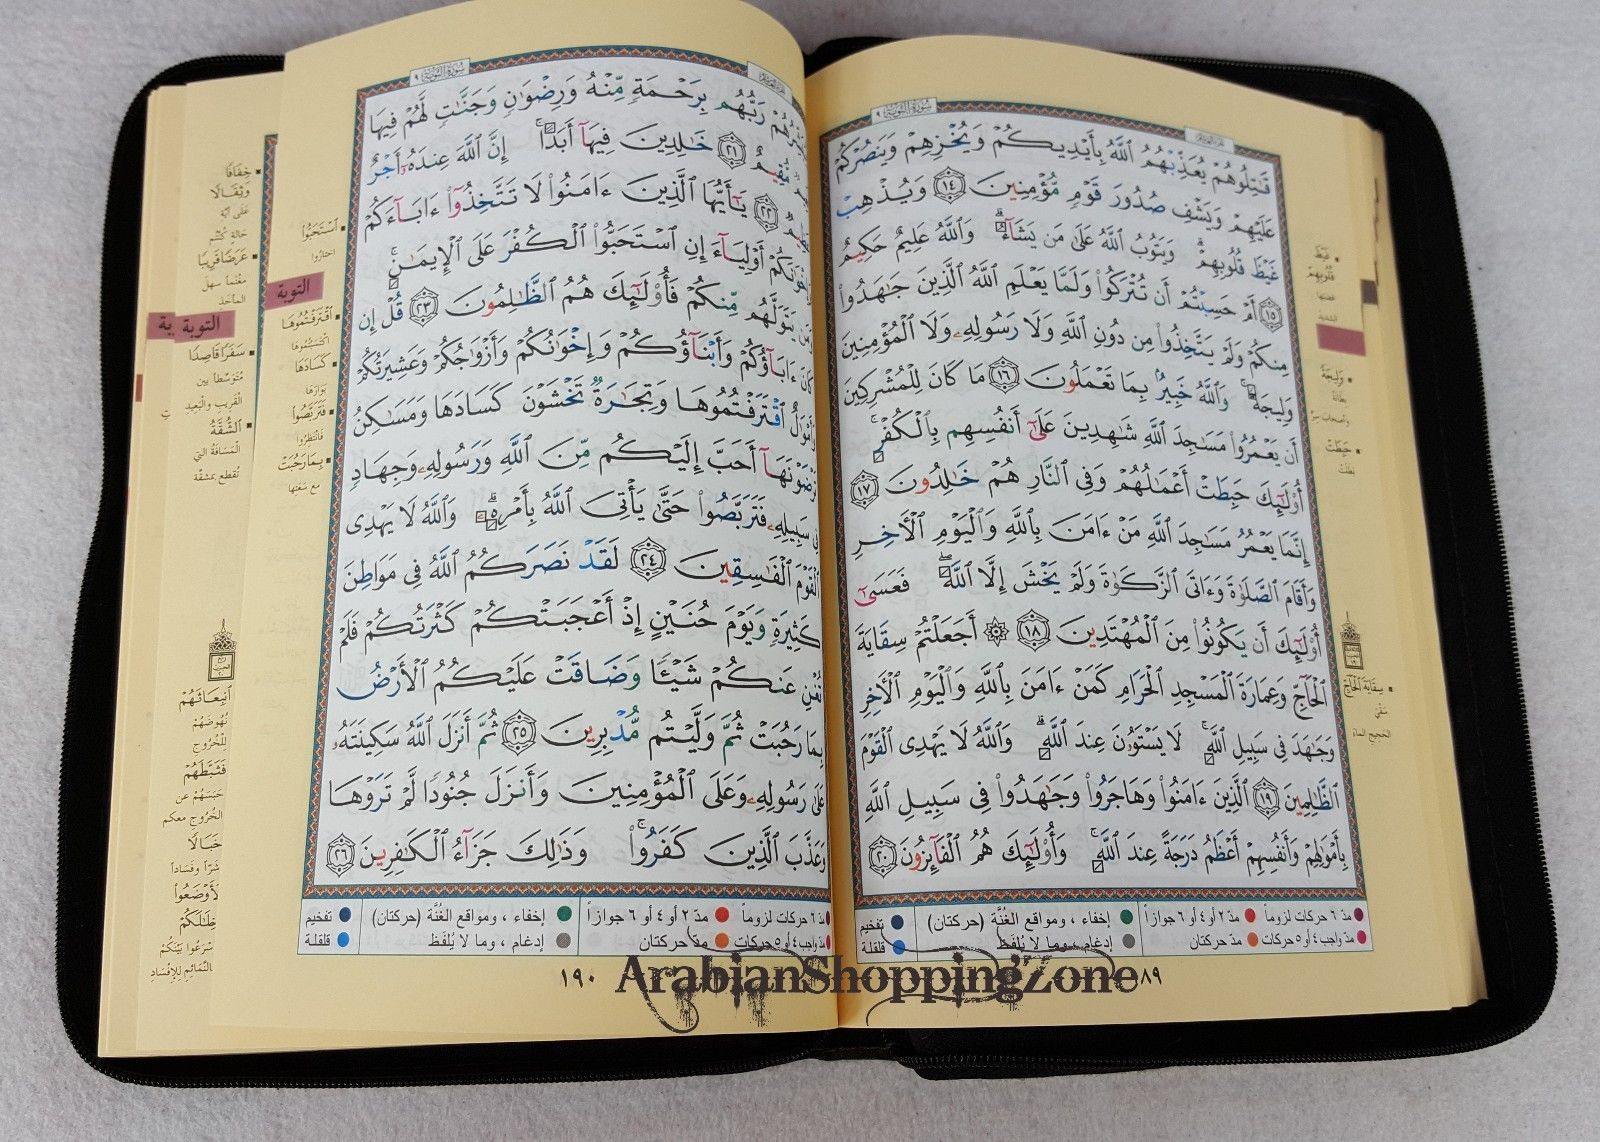 سورة التوبة ٩
قَٰتِلُوهُمْ يُعَذِّبْهُمُ ٱللَّهُ بِأَيْدِيكُمْ وَيُخْزِهِمْ وَيَنصُرْكُمْ
عَلَيْهِمْ وَيَشْفِ صُدُورَ قَوْمٍ مُّؤْمِنِينَ ١٤ وَيُذْهِبْ
غَيْظَ قُلُوبِهِمْ ۗ وَيَتُوبُ ٱللَّهُ عَلَىٰ مَن يَشَآءُ ۗ وَٱللَّهُ عَلِيمٌ حَكِيمٌ
١٥ أَمْ حَسِبْتُمْ أَن تُتْرَكُوا۟ وَلَمَّا يَعْلَمِ ٱللَّهُ ٱلَّذِينَ جَٰهَدُوا۟
مِنكُمْ وَلَمْ يَتَّخِذُوا۟ مِن دُونِ ٱللَّهِ وَلَا رَسُولِهِۦ وَلَا ٱلْمُؤْمِنِينَ
وَلِيجَةً ۚ وَٱللَّهُ خَبِيرٌۢ بِمَا تَعْمَلُونَ ١٦ مَا كَانَ لِلْمُشْرِكِينَ
أَن يَعْمُرُوا۟ مَسَٰجِدَ ٱللَّهِ شَٰهِدِينَ عَلَىٰٓ أَنفُسِهِم بِٱلْكُفْرِ ۚ
أُو۟لَٰٓئِكَ حَبِطَتْ أَعْمَٰلُهُمْ وَفِى ٱلنَّارِ هُمْ خَٰلِدُونَ ١٧
إِنَّمَا يَعْمُرُ مَسَٰجِدَ ٱللَّهِ مَنْ ءَامَنَ بِٱللَّهِ وَٱلْيَوْمِ ٱلْءَاخِرِ
وَأَقَامَ ٱلصَّلَوٰةَ وَءَاتَى ٱلزَّكَوٰةَ وَلَمْ يَخْشَ إِلَّا ٱللَّهَ ۖ فَعَسَىٰٓ
أُو۟لَٰٓئِكَ أَن يَكُونُوا۟ مِنَ ٱلْمُهْتَدِينَ ١٨ ۞ أَجَعَلْتُمْ سِقَايَةَ
ٱلْحَآجِّ وَعِمَارَةَ ٱلْمَسْجِدِ ٱلْحَرَامِ كَمَنْ ءَامَنَ بِٱللَّهِ وَٱلْيَوْمِ ٱلْءَاخِرِ
وَجَٰهَدَ فِى سَبِيلِ ٱللَّهِ ۚ لَا يَسْتَوُۥنَ عِندَ ٱللَّهِ ۗ وَٱللَّهُ لَا يَهْدِى ٱلْقَوْمَ
ٱلظَّٰلِمِينَ ١٩ ٱلَّذِينَ ءَامَنُوا۟ وَهَاجَرُوا۟ وَجَٰهَدُوا۟ فِى سَبِيلِ ٱللَّهِ
بِأَمْوَٰلِهِمْ وَأَنفُسِهِمْ أَعْظَمُ دَرَجَةً عِندَ ٱللَّهِ ۚ وَأُو۟لَٰٓئِكَ هُمُ ٱلْفَآئِزُونَ ٢٠
مدّ ٦ حركات لزوماً مدّ ٢ أو ٤ أو ٦ جوازاً إخفاء ، ومواقع الغُنَّة (حركتان) تفخيم
مدّ واجب ٤ أو ٥ حركات مدّ حركتان إدغام ، وما لا يُلفَظ قلقلة
٨٩
غَيْظَ
قُلُوبِهِمْ
وَلِيجَةً
حَبِطَتْ
سِقَايَةَ ٱلْحَآجِّ
سورة التوبة ٩
رَبُّهُم بِرَحْمَةٍ مِّنْهُ وَرِضْوَٰنٍ وَجَنَّٰتٍ لَّهُمْ فِيهَا
٢١ خَٰلِدِينَ فِيهَآ أَبَدًا ۚ إِنَّ ٱللَّهَ عِندَهُۥٓ أَجْرٌ
٢٢ يَٰٓأَيُّهَا ٱلَّذِينَ ءَامَنُوا۟ لَا تَتَّخِذُوٓا۟ ءَابَآءَكُمْ
أَوْلِيَآءَ إِنِ ٱسْتَحَبُّوا۟ ٱلْكُفْرَ عَلَى ٱلْإِيمَٰنِ ۚ
يَتَوَلَّهُم مِّنكُمْ فَأُو۟لَٰٓئِكَ هُمُ ٱلظَّٰلِمُونَ ٢٣ قُلْ إِن
كَانَ ءَابَآؤُكُمْ وَأَبْنَآؤُكُمْ وَإِخْوَٰنُكُمْ وَأَزْوَٰجُكُمْ وَعَشِيرَتُكُمْ
ٱقْتَرَفْتُمُوهَا وَتِجَٰرَةٌ تَخْشَوْنَ كَسَادَهَا وَمَسَٰكِنُ
أَحَبَّ إِلَيْكُم مِّنَ ٱللَّهِ وَرَسُولِهِۦ وَجِهَادٍ
فِى سَبِيلِهِۦ فَتَرَبَّصُوا۟ حَتَّىٰ يَأْتِىَ ٱللَّهُ بِأَمْرِهِۦ ۗ وَٱللَّهُ لَا يَهْدِى
ٱلْقَوْمَ ٱلْفَٰسِقِينَ ٢٤ لَقَدْ نَصَرَكُمُ ٱللَّهُ فِى مَوَاطِنَ
كَثِيرَةٍ وَيَوْمَ حُنَيْنٍ إِذْ أَعْجَبَتْكُمْ كَثْرَتُكُمْ فَلَمْ
تُغْنِ عَنكُمْ شَيْـًٔا وَضَاقَتْ عَلَيْكُمُ ٱلْأَرْضُ
بِمَا رَحُبَتْ ثُمَّ وَلَّيْتُم مُّدْبِرِينَ ٢٥ ثُمَّ أَنزَلَ ٱللَّهُ سَكِينَتَهُۥ
عَلَىٰ رَسُولِهِۦ وَعَلَى ٱلْمُؤْمِنِينَ وَأَنزَلَ جُنُودًا لَّمْ تَرَوْهَا
وَعَذَّبَ ٱلَّذِينَ كَفَرُوا۟ ۚ وَذَٰلِكَ جَزَآءُ ٱلْكَٰفِرِينَ ٢٦
مدّ ٦ حركات لزوماً مدّ ٢ أو ٤ أو ٦ جوازاً إخفاء ، ومواقع الغُنَّة (حركتان) تفخيم
مدّ واجب ٤ أو ٥ حركات مدّ حركتان إدغام ، وما لا يُلفَظ قلقلة
١٩٠
ٱسْتَحَبُّوا۟
اختاروا
التوبة
ٱقْتَرَفْتُمُوهَا
اكتسبتموها
كَسَادَهَا
بَوَارَهَا
فَتَرَبَّصُوا۟
فانتظروا
بِمَا رَحُبَتْ
مع سَعَتِها
خِفَافًا
وَثِقَالًا
على أيّة
حالةٍ كُنتُم
عَرَضًا قَرِيبًا
مَغْنَماً سهل
المأخذ
التوبة
سَفَرًا قَاصِدًا
مُتَوَسِّطاً بين
القَريب والبَعِيد
ٱلشُّقَّةُ
المَسَافَةُ التي
تُقطع بمشقّة
ٱنۢبِعَاثَهُمْ
نُهُوضَهُمْ
لِلْخُروج
فَثَبَّطَهُمْ
حَبَسَهُمْ عن
الخُروج معكم
خَبَالًا
شرّاً وفَسَاداً
لَأَوْضَعُوا۟
خِلَٰلَكُمْ
أَسْرَعُوا بَيْنَكُمْ
بالنَّمائِمِ للإفْسَادِ
ArabianShoppingZone